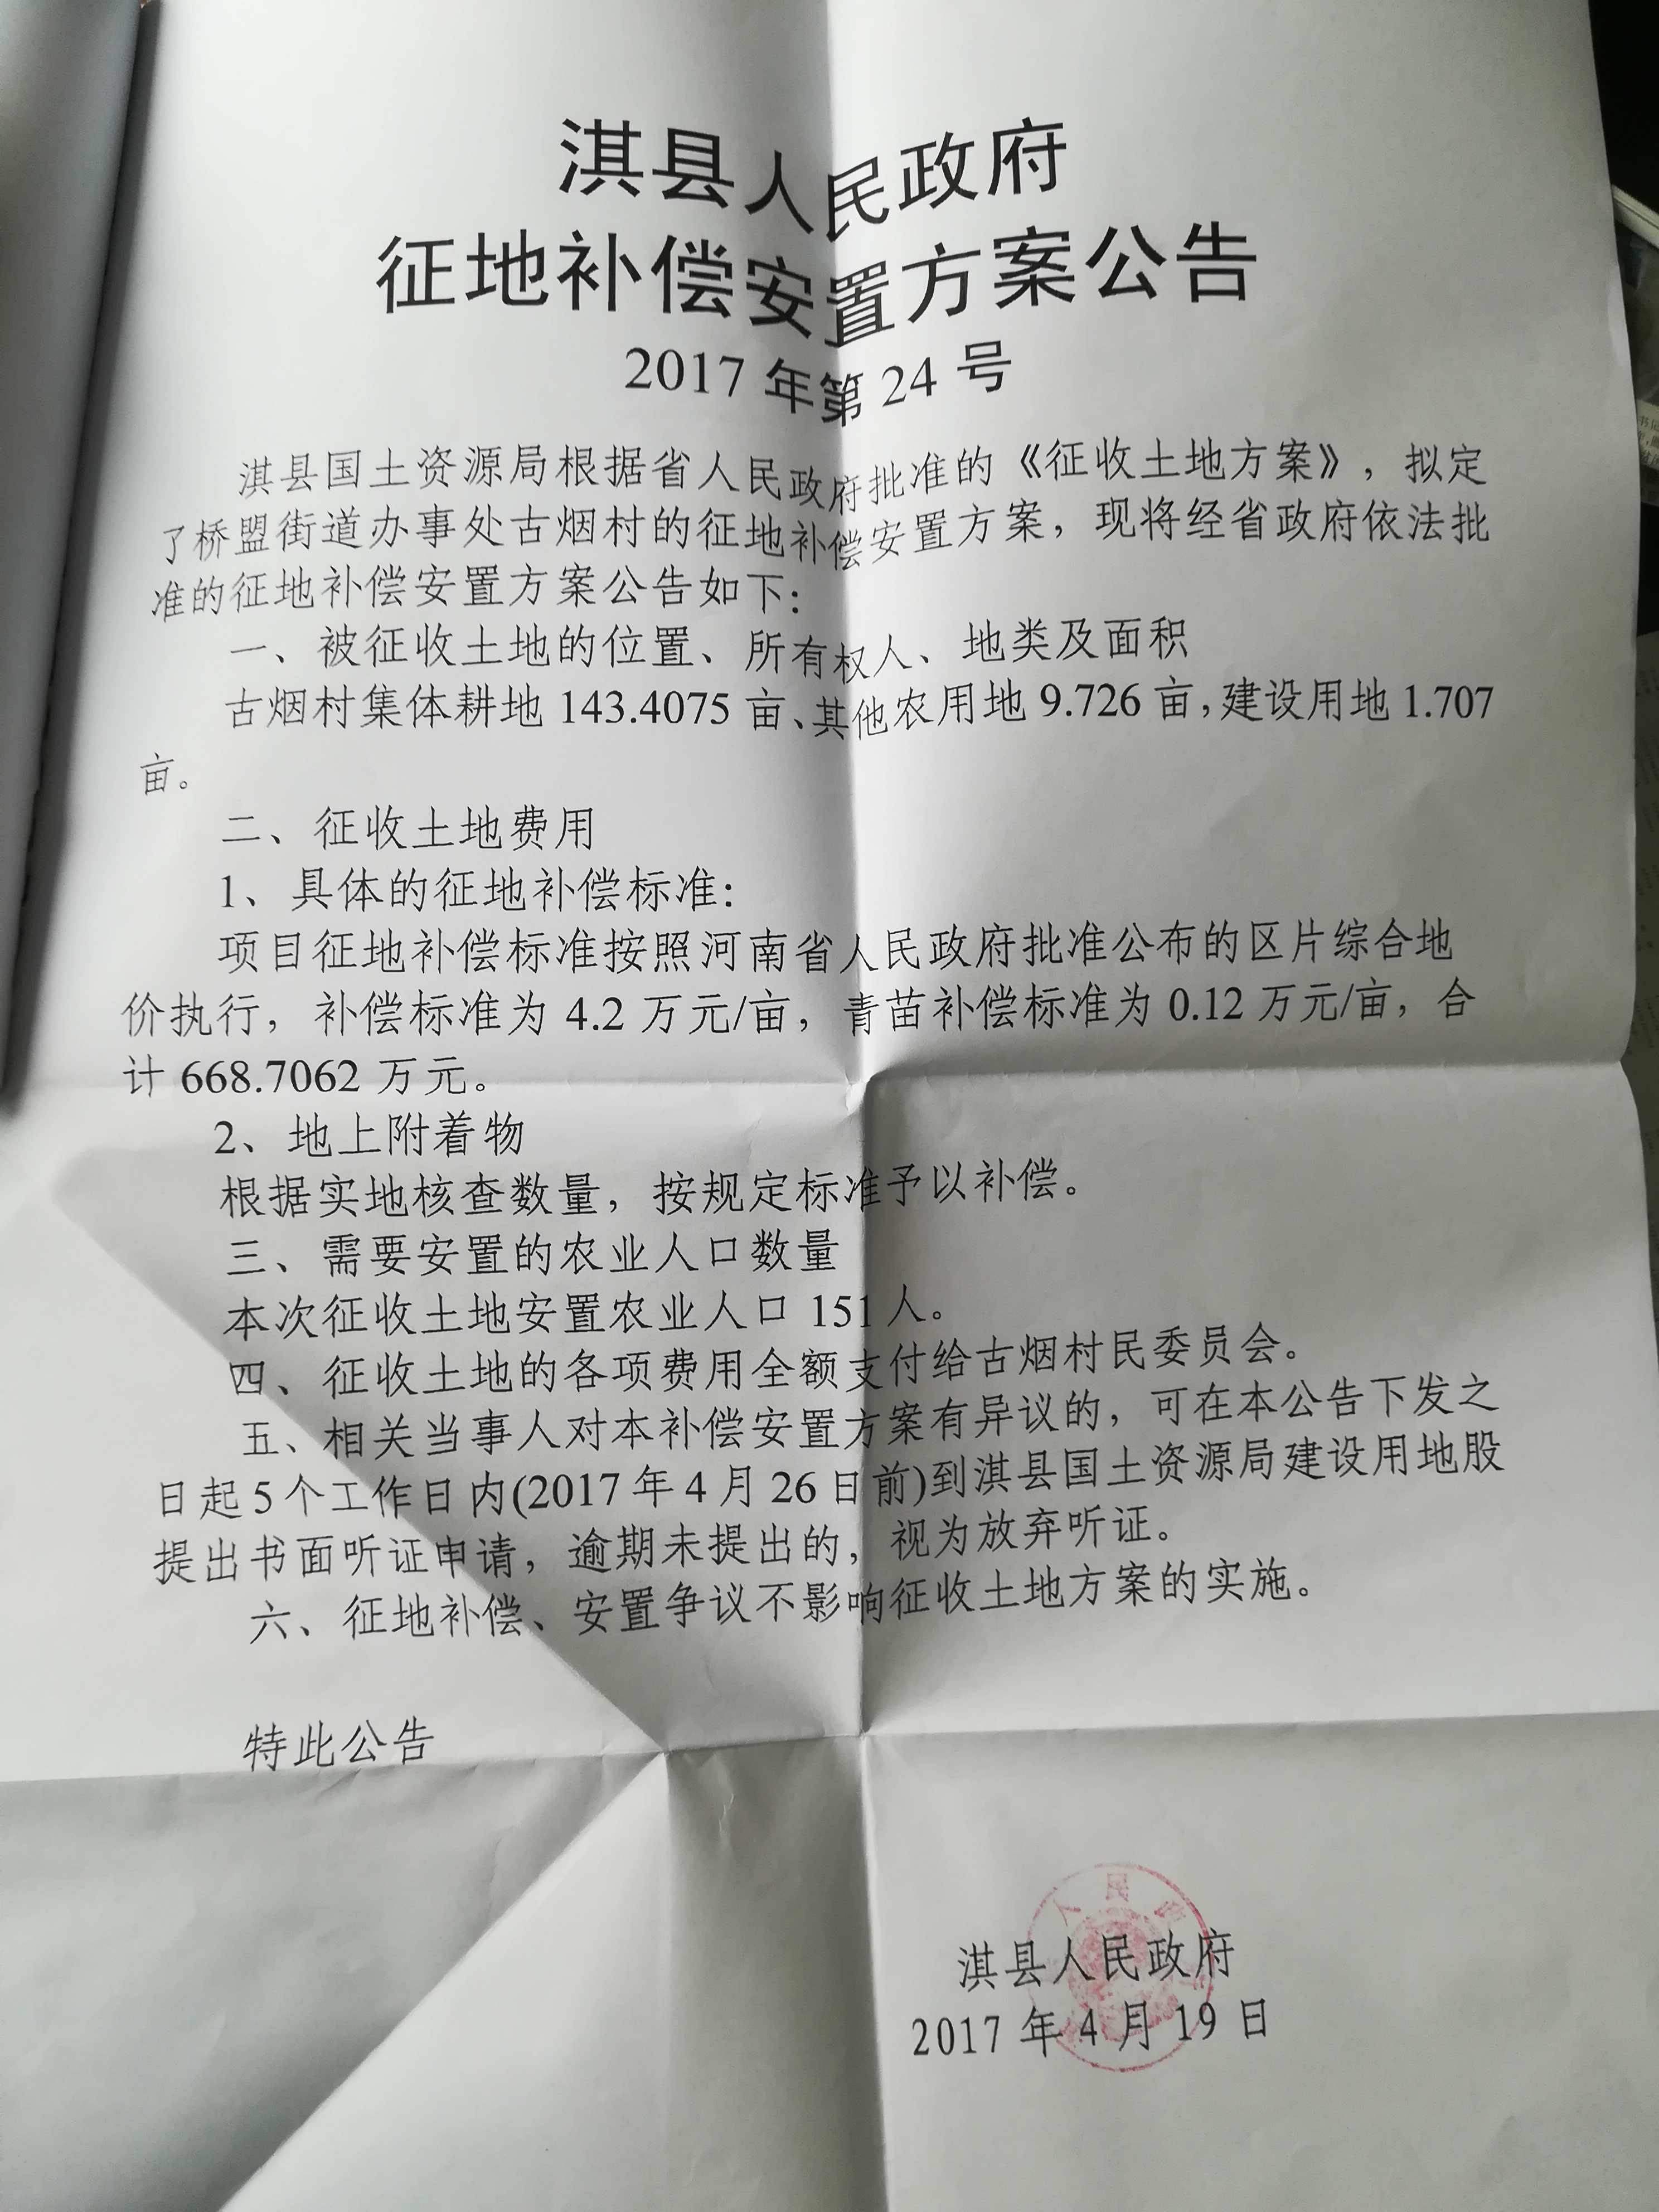 淇县人民政府
征地补偿安置方案公告
2017年第24号
淇县国土资源局根据省人民政府批准的《征收土地方案》，拟定
了桥盟街道办事处古烟村的征地补偿安置方案，现将经省政府依法批
准的征地补偿安置方案公告如下：
一、被征收土地的位置、所有权人、地类及面积
古烟村集体耕地143.4075亩、其他农用地9.726亩，建设用地1.707
亩。
二、征收土地费用
1、具体的征地补偿标准：
项目征地补偿标准按照河南省人民政府批准公布的区片综合地
价执行，补偿标准为4.2万元/亩，青苗补偿标准为0.12万元/亩，合
计668.7062万元。
2、地上附着物
根据实地核查数量，按规定标准予以补偿。
三、需要安置的农业人口数量
本次征收土地安置农业人口151人。
四、征收土地的各项费用全额支付给古烟村民委员会。
五、相关当事人对本补偿安置方案有异议的，可在本公告下发之
日起5个工作日内(2017年4月26日前)到淇县国土资源局建设用地股
提出书面听证申请，逾期未提出的，视为放弃听证。
六、征地补偿、安置争议不影响征收土地方案的实施。
特此公告
人民
淇县人民政府
2017年4月19日